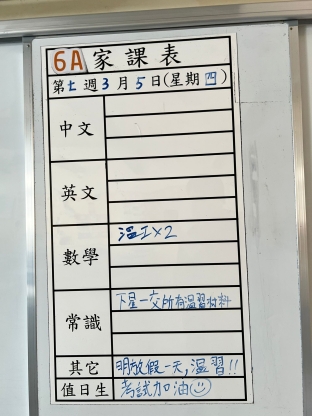 6A 家課表
第七週3月5日(星期四)
中文
英文
數學 溫工×2
常識 下星一交所有溫習材料
其它 明放假一天,溫習!!
值日生 考試加油☺